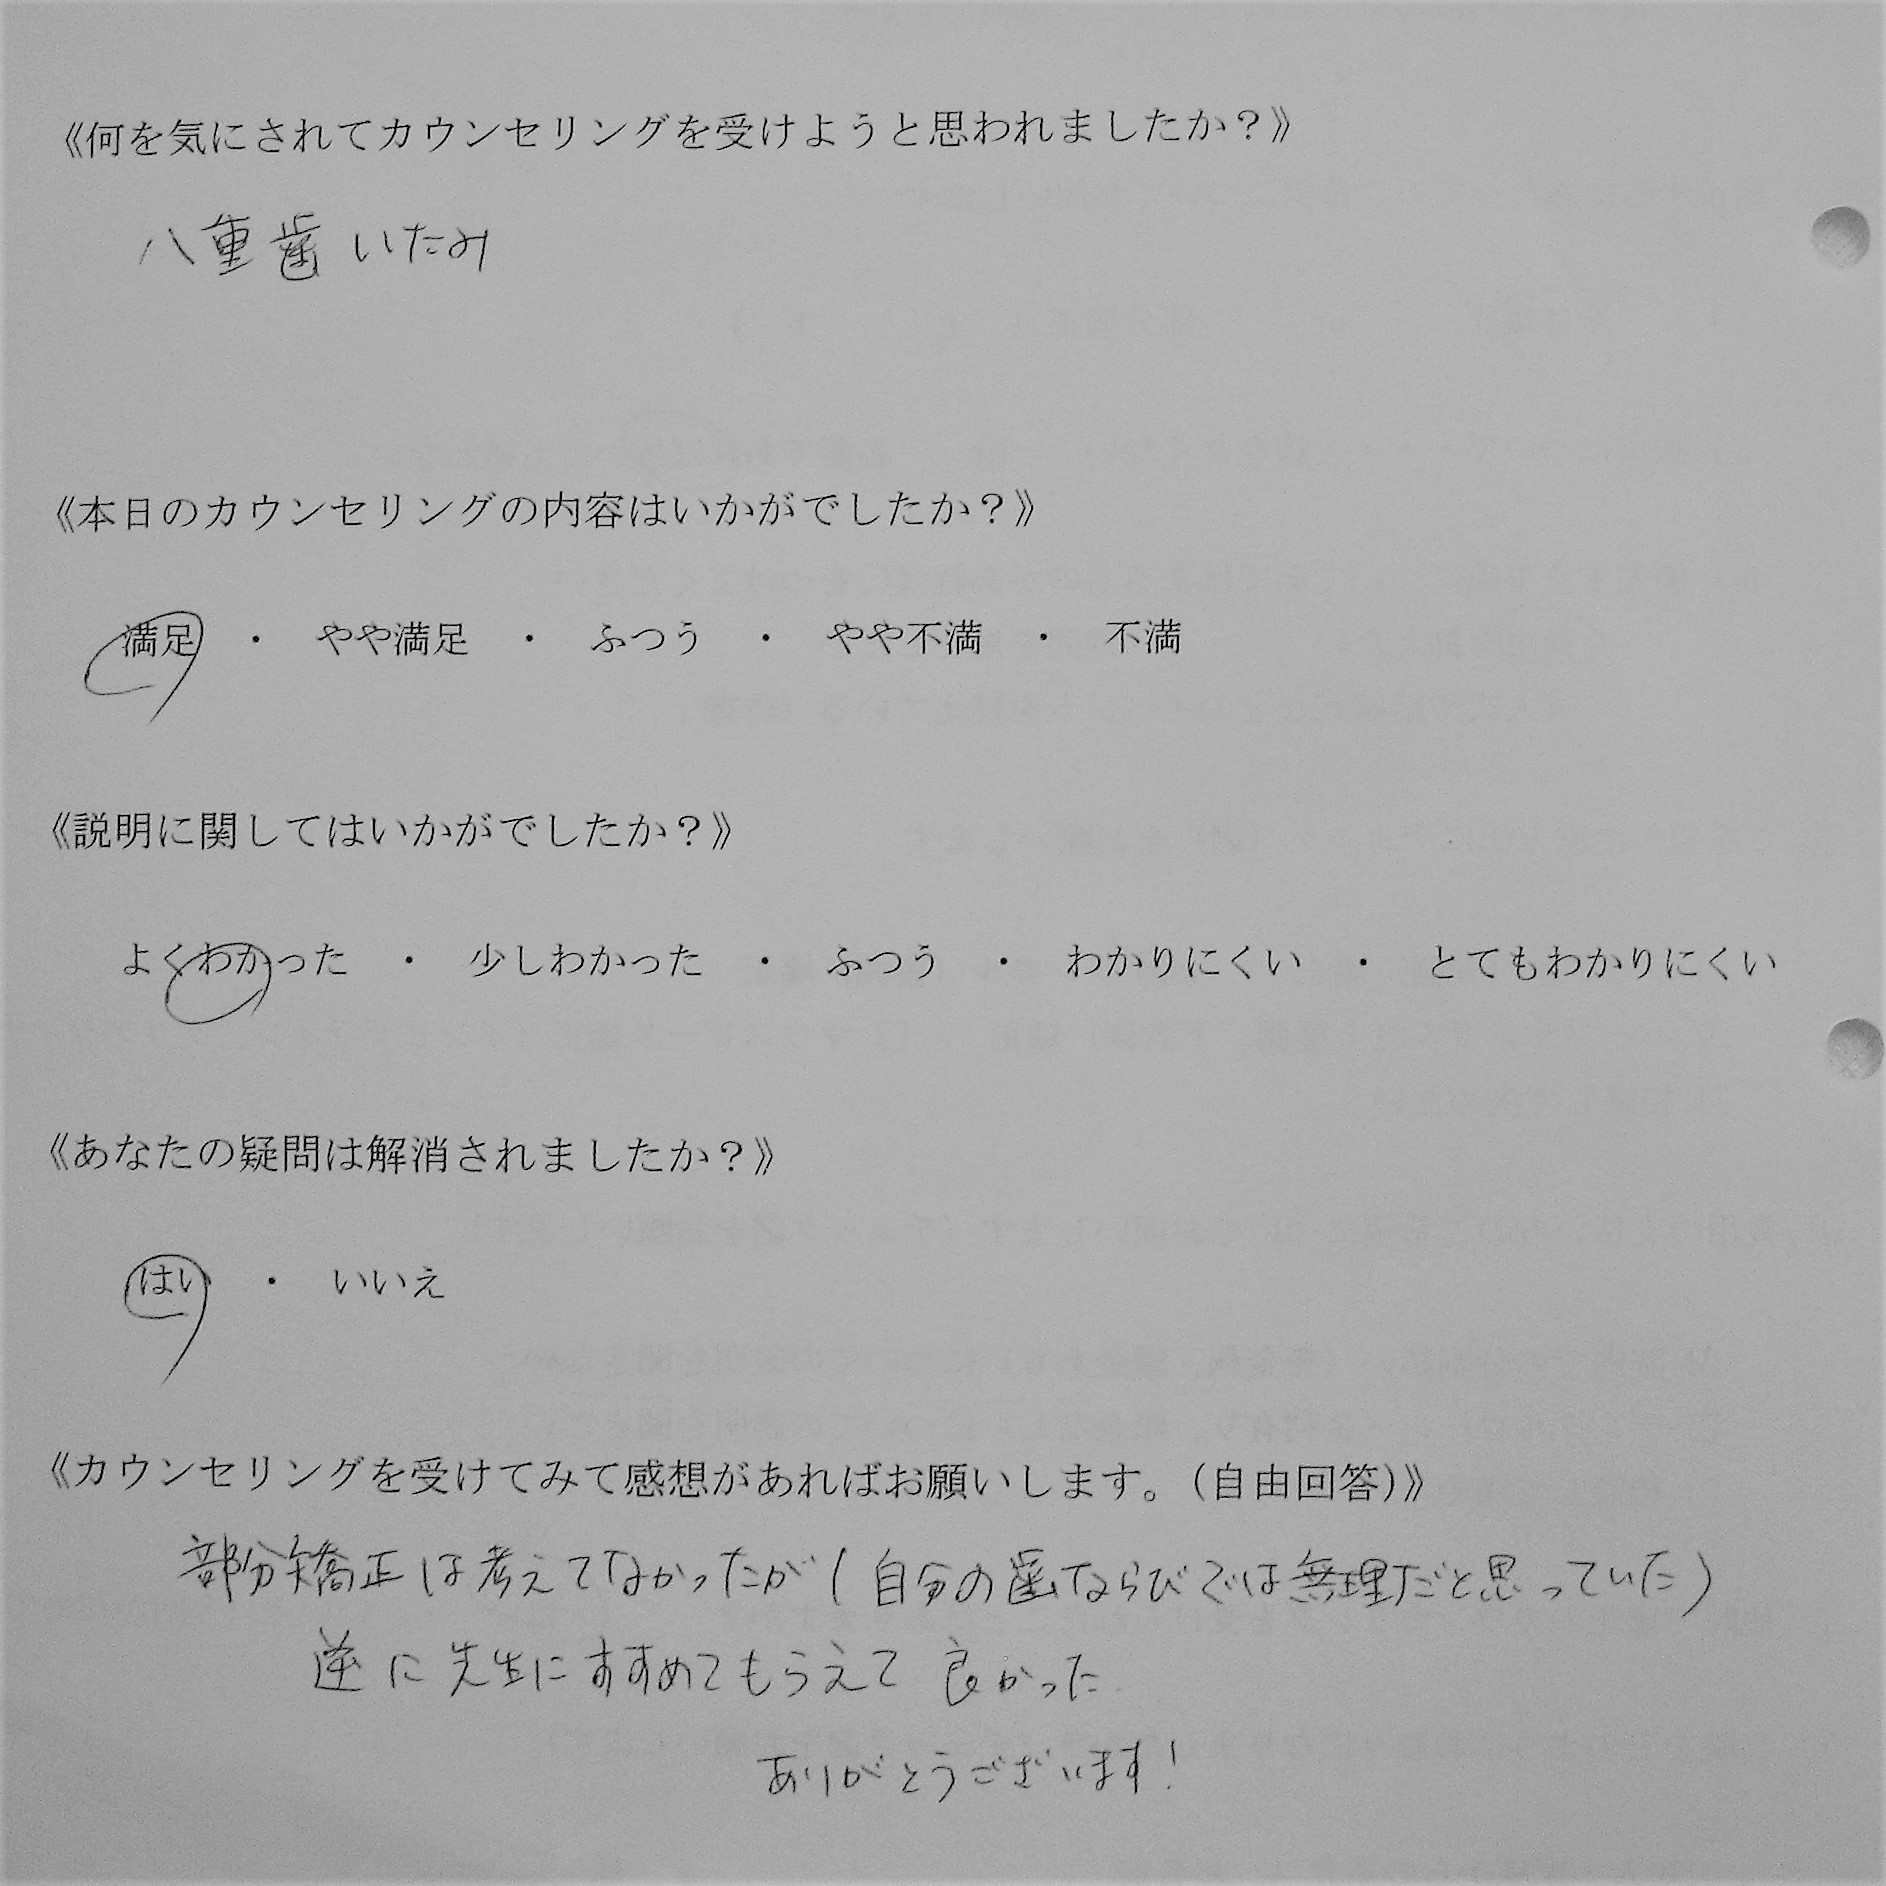 《何を気にされてカウンセリングを受けようと思われましたか？》
八重歯 いたみ
《本日のカウンセリングの内容はいかがでしたか？》
満足　・　やや満足　・　ふつう　・　やや不満　・　不満
《説明に関してはいかがでしたか？》
よくわかった　・　少しわかった　・　ふつう　・　わかりにくい　・　とてもわかりにくい
《あなたの疑問は解消されましたか？》
はい　・　いいえ
《カウンセリングを受けてみて感想があればお願いします。（自由回答）》
部分矯正は考えてなかったが（自分の歯ならびでは無理だと思っていた）
逆に先生にすすめてもらえて 良かった
ありがとうございます！